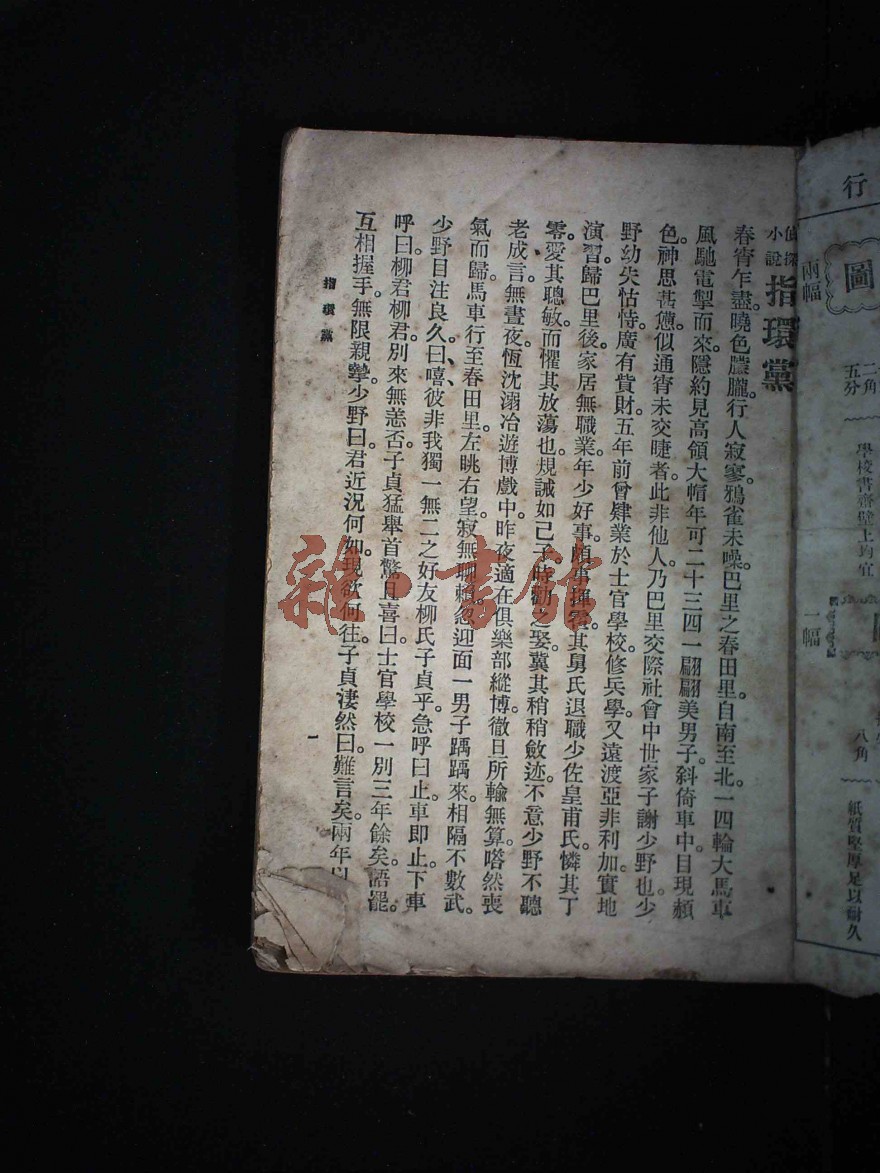 行
圖
兩幅
二角
五分
學校書齋壁上均宜
一幅
八角
紙質堅厚足以耐久
偵探
小說
指環黨
春宵乍盡。曉色朦朧。行人寂寥。鴉雀未噪。巴里之春田里。自南至北。一四輪大馬車
風馳電掣而來。隱約見高領大帽年可二十三四一翩翩美男子。斜倚車中。目現頳
色。神思甚憊。似通宵未交睫者。此非他人。乃巴里交際社會中世家子謝少野也。少
野幼失怙恃。廣有貲財。五年前曾肄業於士官學校。修兵學。又遠渡亞非利加。實地
演習。歸巴里後。家居無職業。年少好事。隨事揮霍。其舅氏退職少佐皇甫氏。憐其丁
零。愛其聰敏。而懼其放蕩也。規誡如己子。時勸之娶。冀其稍稍斂迹。不意少野不聽
老成言。無晝夜。恆沈溺冶遊博戲中。昨夜適在俱樂部縱博徹旦。所輸無算。嗒然喪
氣而歸。馬車行至春田里。左眺右望。寂無聊賴。忽迎面一男子踽踽來。相隔不數武。
少野目注良久曰。嘻。彼非我獨一無二之好友柳氏子貞乎。急呼曰。止。車即止。下車
呼曰。柳君柳君。別來無恙否。子貞猛舉首。驚且喜曰。士官學校一別三年餘矣。語罷。
互相握手。無限親摯。少野曰。君近況何如。現欲何往。子貞淒然曰。難言矣。兩年以
指環黨
一
雜·書館